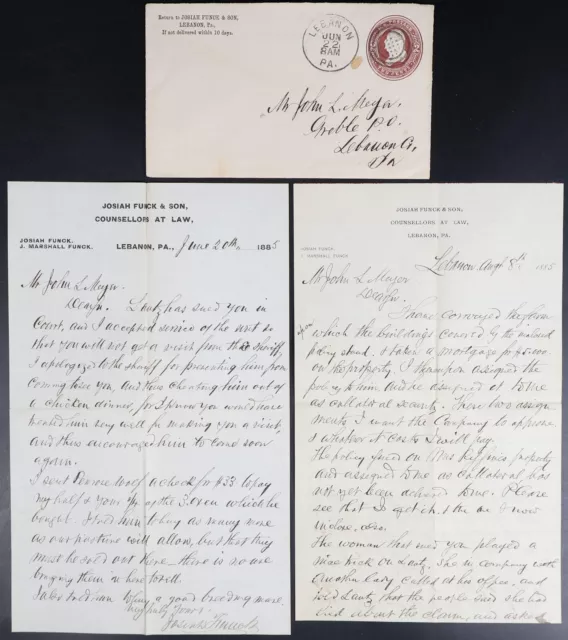 Return to JOSIAH FUNCK & SON,
LEBANON, PA.,
If not delivered within 10 days.
LEBANON
JUN
22
8AM
PA.
Mr John L. Meyer.
Groble P.O.
Lebanon Co.
Pa
JOSIAH FUNCK & SON,
COUNSELLORS AT LAW,
JOSIAH FUNCK.
J. MARSHALL FUNCK.
LEBANON, PA., June 20th, 1885
Mr John L Meyer.
Dear Sir. Lantz has sued you in
Court, and I accepted service of the writ so
that you will not get a visit from the Sheriff,
I apologized to the sheriff for preventing him from
coming to see you, and thus cheating him out of
a chicken dinner, for I know you would have
treated him very well for making you a visit,
and thus encouraged him to come soon
again.
I sent Monroe Wolf a check for $33 to pay
my half & your 1/4 of the 3 oxen which he
bought. I told him to buy as many more
as our pasture will allow, but that they
must be sold out there - there is no use
bringing them in here to sell.
I also told him to buy a good breeding mare.
Very truly Yours.
Josiah Funck
JOSIAH FUNCK & SON,
COUNSELLORS AT LAW,
LEBANON, PA.
JOSIAH FUNCK
J. MARSHALL FUNCK.
Lebanon Augt 8th 1885
Mr John L Meyer
Dear Sir.
I have conveyed the place
which the buildings covered by the inclosed
policy stand & taken a mortgage for $5,000
on the property. I therefore assigned the
policy to him and he assigned it to me
as collateral security. These two assign
ments I want the Company to approve
& whatever it costs I will pay.
The policy issued on Mrs property
and assigned to me as collateral has
not yet been delivered to me. Please
see that I get it. & the one I now
inclose, also.
The woman that sued you played a
nice trick on Lantz. She in company with
another lady called at his office, and
told Lantz, that the people said she had
lied about the claim, and asked